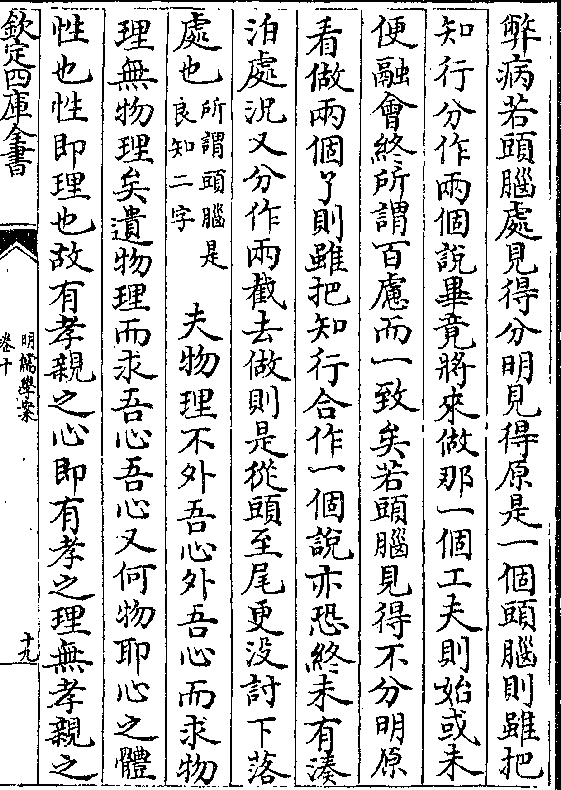 弊病若頭腦處見得分明見得原是一個頭腦則雖把
知行分作兩個說畢竟將來做那一個工夫則始或未
便融會終所謂百慮而一致矣若頭腦見得不分明原
看做兩個了則雖把知行合作一個說亦恐終未有湊
泊處況又分作兩截去做則是從頭至尾更没討下落
處也 所謂頭腦是
良知二字
夫物理不外吾心外吾心而求物
理無物理矣遺物理而求吾心吾心又何物耶心之體
性也性即理也故有孝親之心即有孝之理無孝親之
欽定四庫全書
明儒學案
卷十
十九